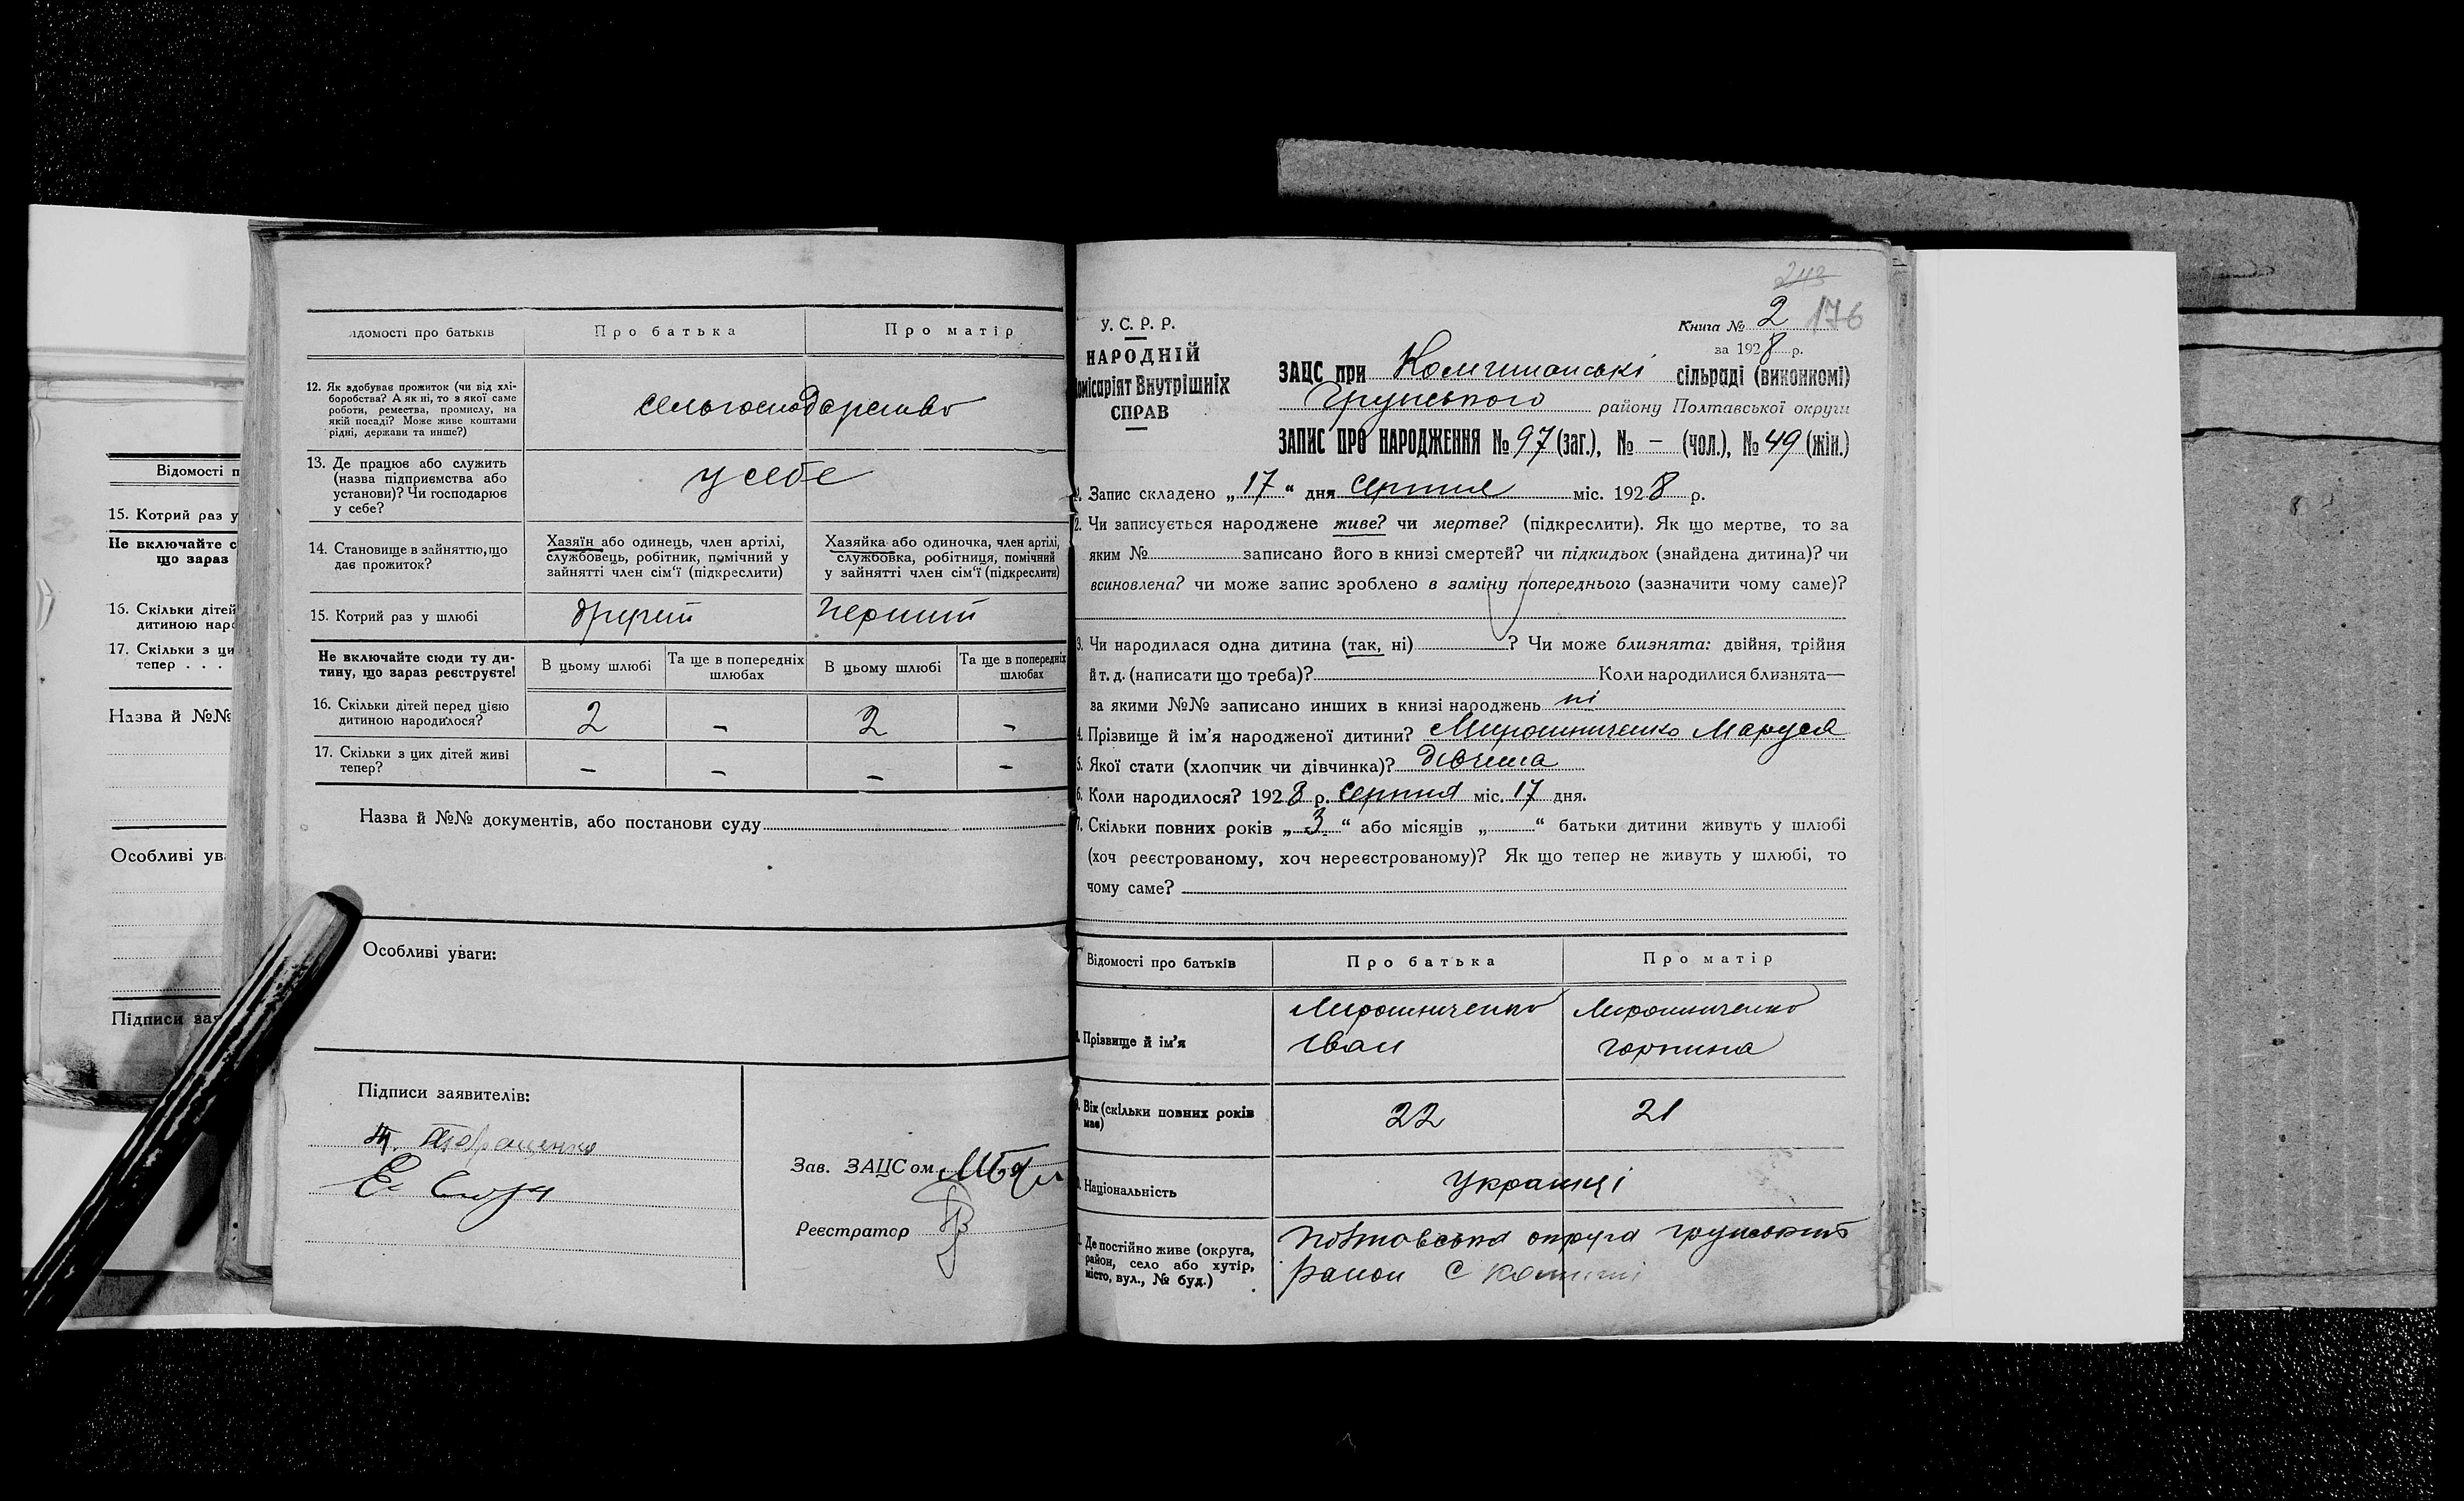 Відомості п
15. Котрий раз у
Не включайте с
що зараз
16. Скільки дітей
дитиною наро
17. Скільки з ци
тепер . . .
Назва й №№
Особливі ув
Підписи зая
ідомості про батьків Про батька Про матір
12. Як здобуває прожиток (чи від хлі-
боробства? А як ні, то з якої саме
роботи, ремества, промислу, на
якій посаді? Може живе коштами
рідні, держави та инше?)
сельгосподарство
13. Де працює або служить
(назва підприємства або
установи)? Чи господарює
у себе?
у себе
14. Становище в зайняттю, що
дає прожиток?
Хазяїн або одинець, член артілі,
службовець, робітник, помічний у
зайнятті член сім'ї (підкреслити)
Хазяйка або одиночка, член артілі,
службовка, робітниця, помічний
у зайнятті член сім'ї (підкреслити)
15. Котрий раз у шлюбі другий перший
Не включайте сюди ту ди-
тину, що зараз реєструєте!
В цьому шлюбі Та ще в попередніх шлюбах В цьому шлюбі Та ще в попередніх шлюбах
16. Скільки дітей перед цією
дитиною народилося? 2 – 2 –
17. Скільки з цих дітей живі
тепер? – – – –
Назва й №№ документів, або постанови суду
Особливі уваги:
Підписи заявителів:
Зав. ЗАЦСом
Реєстратор
243
176
У. С. Р. Р.
НАРОДНІЙ
омісаріят Внутрішніх
СПРАВ
Книга № 2
за 1928 р.
ЗАЦС при Комишанські сільраді (виконкомі)
Грунського району Полтавської округи
ЗАПИС ПРО НАРОДЖЕННЯ № 97 (заг.), № – (чол.), № 49 (жін.)
1. Запис складено „17“ дня серпня міс. 1928 р.
2. Чи записується народжене живе? чи мертве? (підкреслити). Як що мертве, то за
яким № записано його в книзі смертей? чи підкидьок (знайдена дитина)? чи
всиновлена? чи може запис зроблено в заміну попереднього (зазначити чому саме)?
3. Чи народилася одна дитина (так, ні) ? Чи може близнята: двійня, трійня
й т. д. (написати що треба)? Коли народилися близнята—
за якими №№ записано инших в книзі народжень ні
4. Прізвище й ім'я народженої дитини? Мирошниченко Маруся
5. Якої стати (хлопчик чи дівчинка)? дівчина
6. Коли народилося? 1928 р. серпня міс. 17 дня.
7. Скільки повних років „3“ або місяців „ “ батьки дитини живуть у шлюбі
(хоч реєстрованому, хоч нереєстрованому)? Як що тепер не живуть у шлюбі, то
чому саме?
Відомості про батьків Про батька Про матір
Прізвище й ім'я
Мирошниченко
Іван
Мирошниченко
Горпина
Вік (скільки повних років
має) 22 21
Національність Українці
Де постійно живе (округа,
район, село або хутір,
місто, вул., № буд.)
Полтавська округа Грунський
район с Комиші